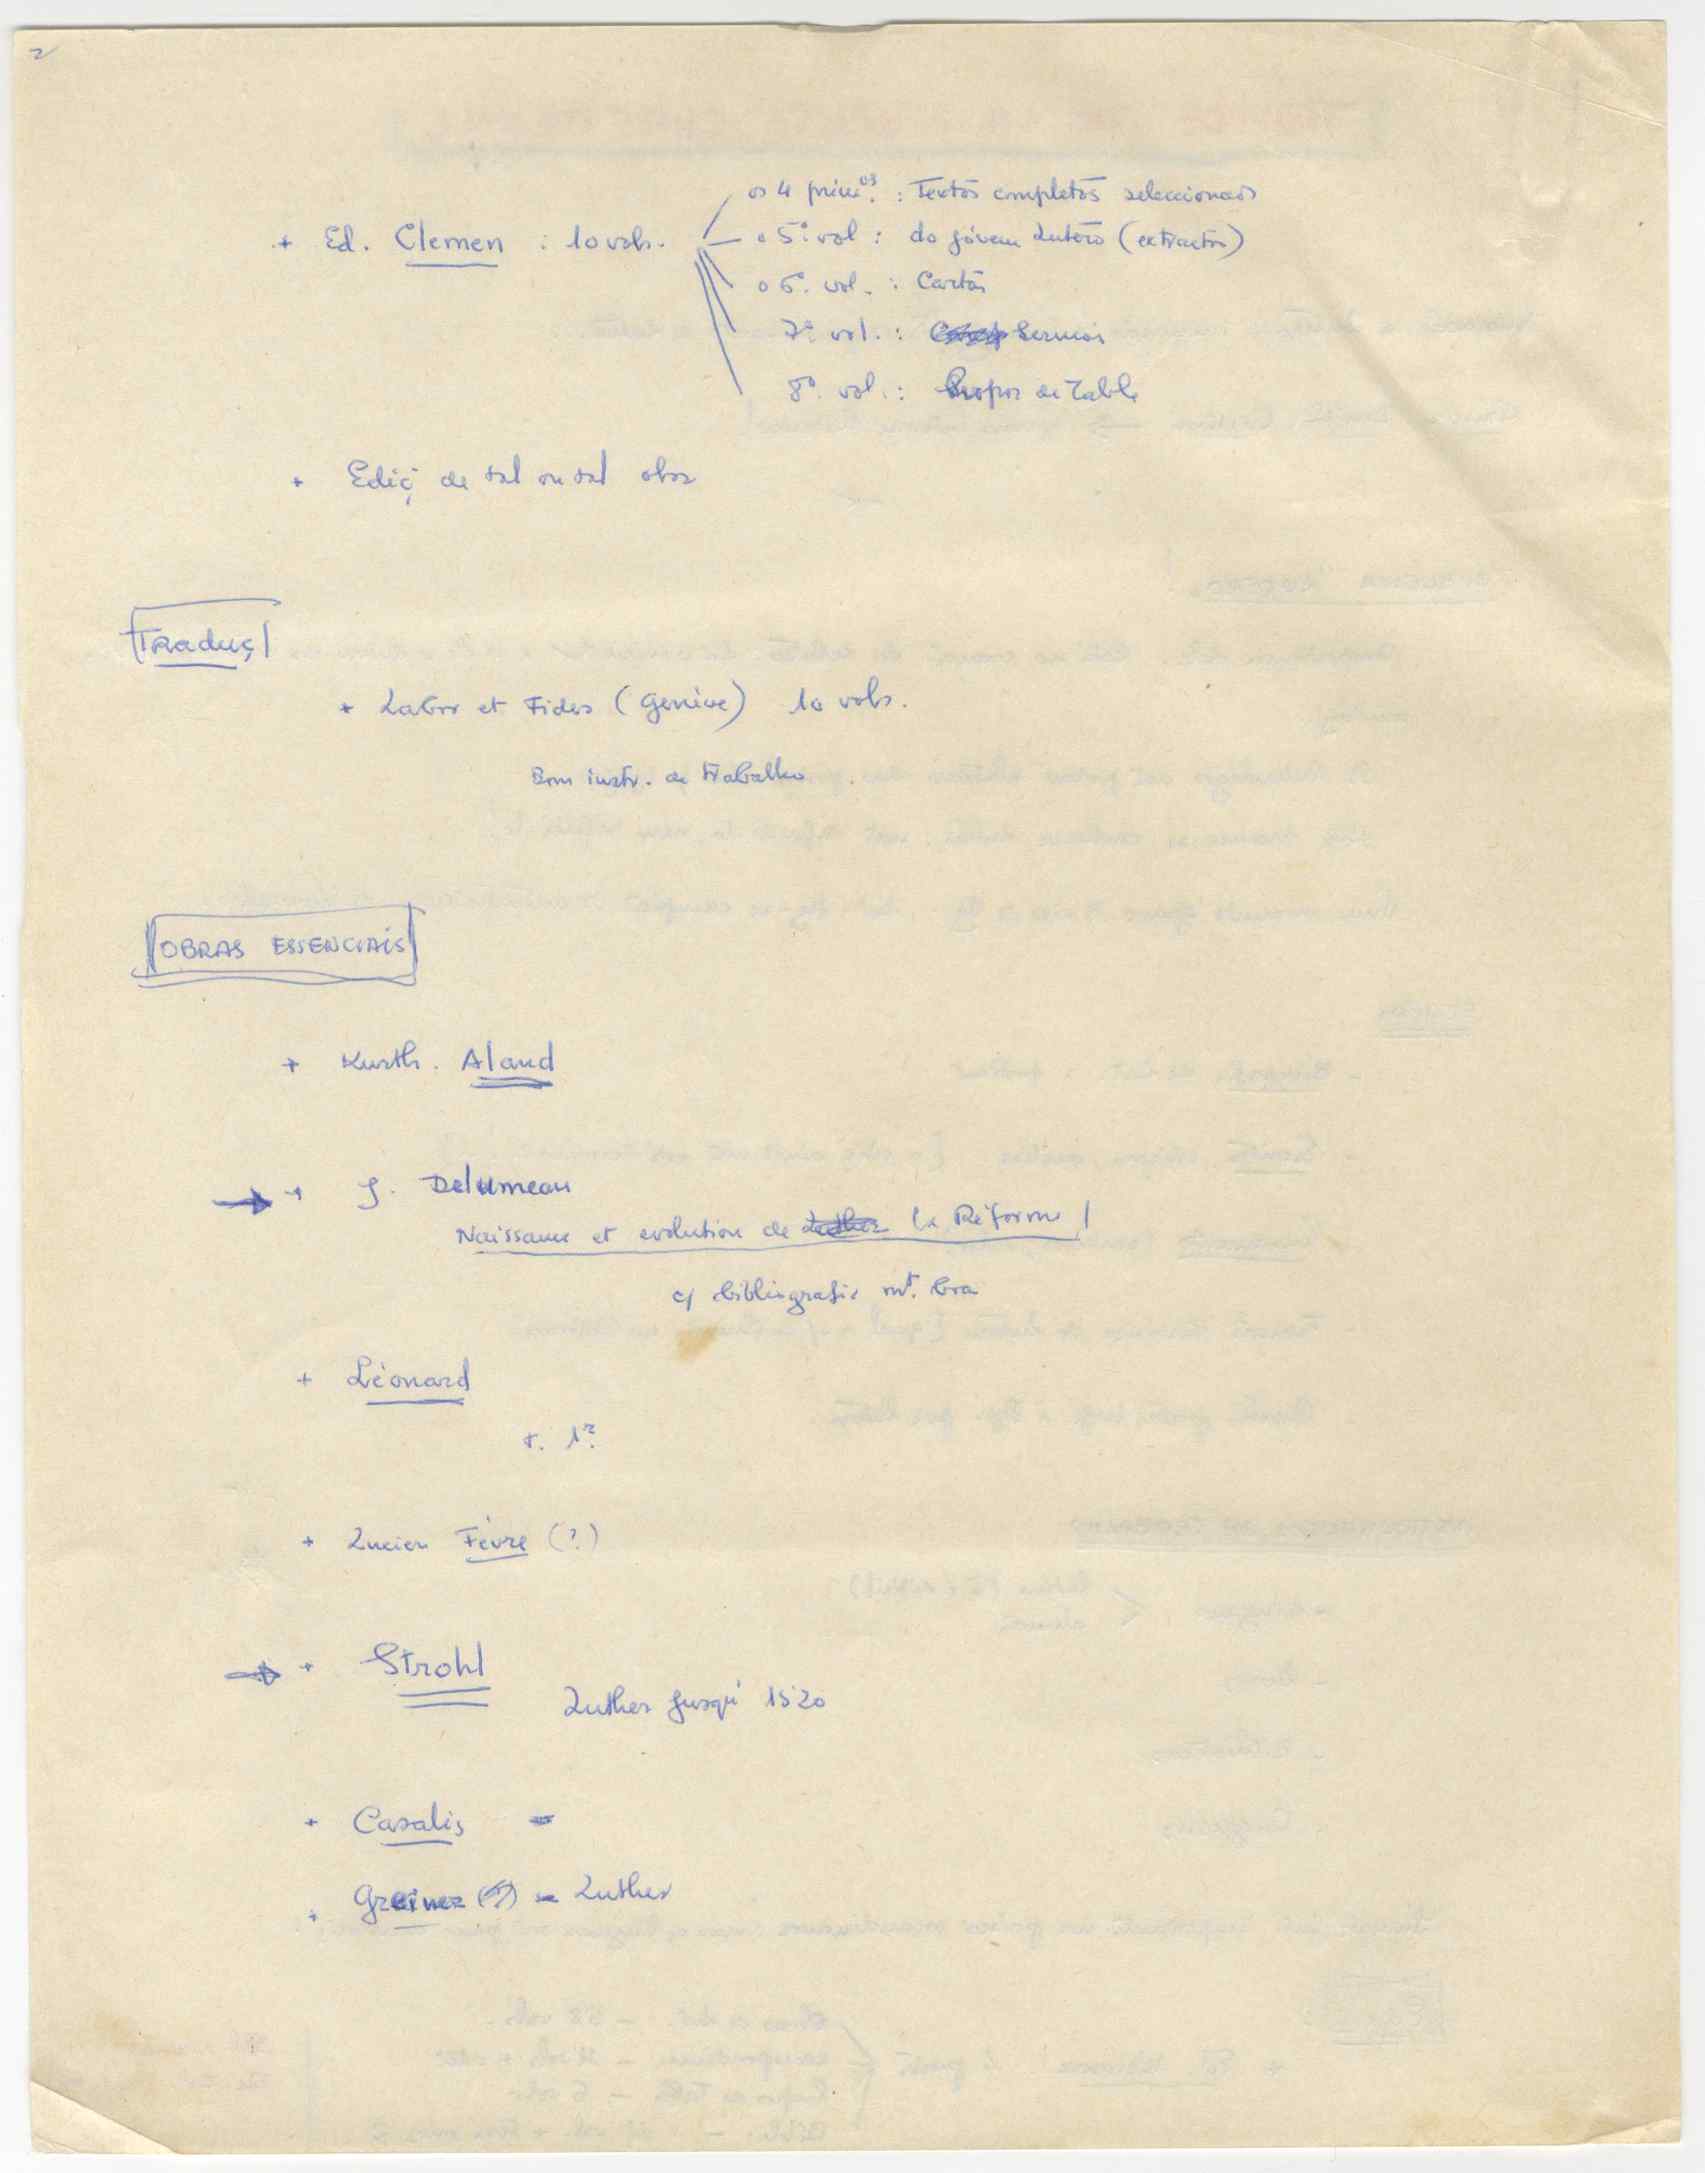 2
os 4 prim.os : Textos completos seleccionados
+ Ed. Clemen : 10 vols.
o 5º. vol : do jóvem Lutero (extractos)
o 6º. vol. : Cartas
7º vol. : Sermões
8º. vol. : Propos de Table
+ Ediç de tal ou tal obra
Traduç
+ Labor et Fides (Genève) 10 vols.
Bom instr. de trabalho
OBRAS ESSENCIAIS
+ Kurth. Aland
→ + J. Delumeau
Naissance et evolution de Luther la Réforme
c/ bibliografia mt. boa
+ Léonard
t. 1º.
+ Lucien Fèvre (?)
→ + Strohl
Luther jusqu'  1520
+ Casalis -
+ Greiner (?) - Luther